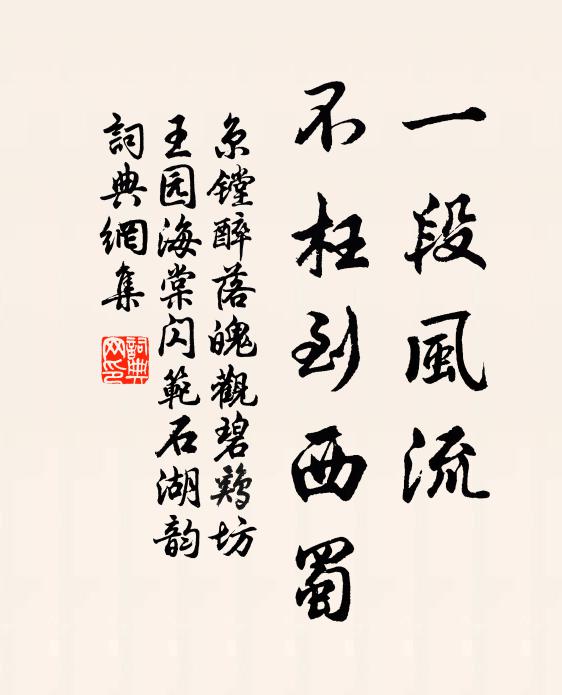 一段風流
不枉到西蜀
京镗醉落魄觀碧鷄坊
王园海棠闪範石湖韵
詞典網集
詞典网印